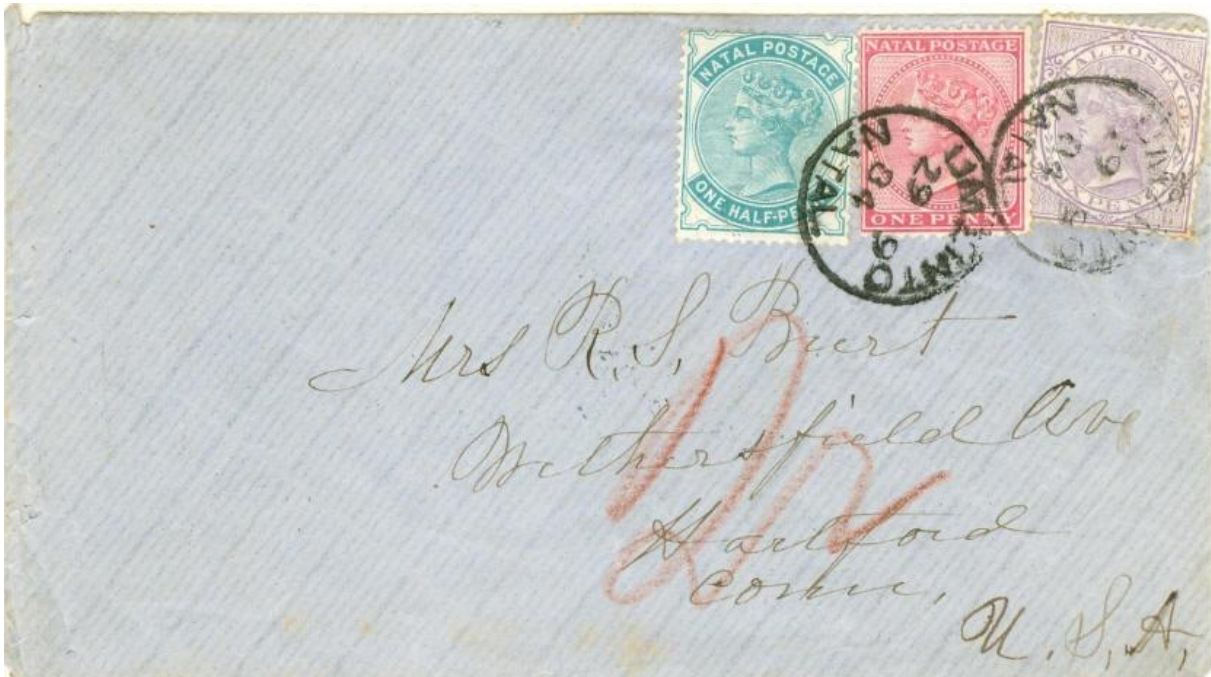 NATAL POSTAGE
ONE HALF-PE
NATAL POSTAGE
ONE PENNY
AL POSTAGE
PENN
UMZINTO
29
84
9
NATAL
NATAL
Mrs R. S. Burt
Wethersfield Ave
Hartford
Conn.
U. S. A.